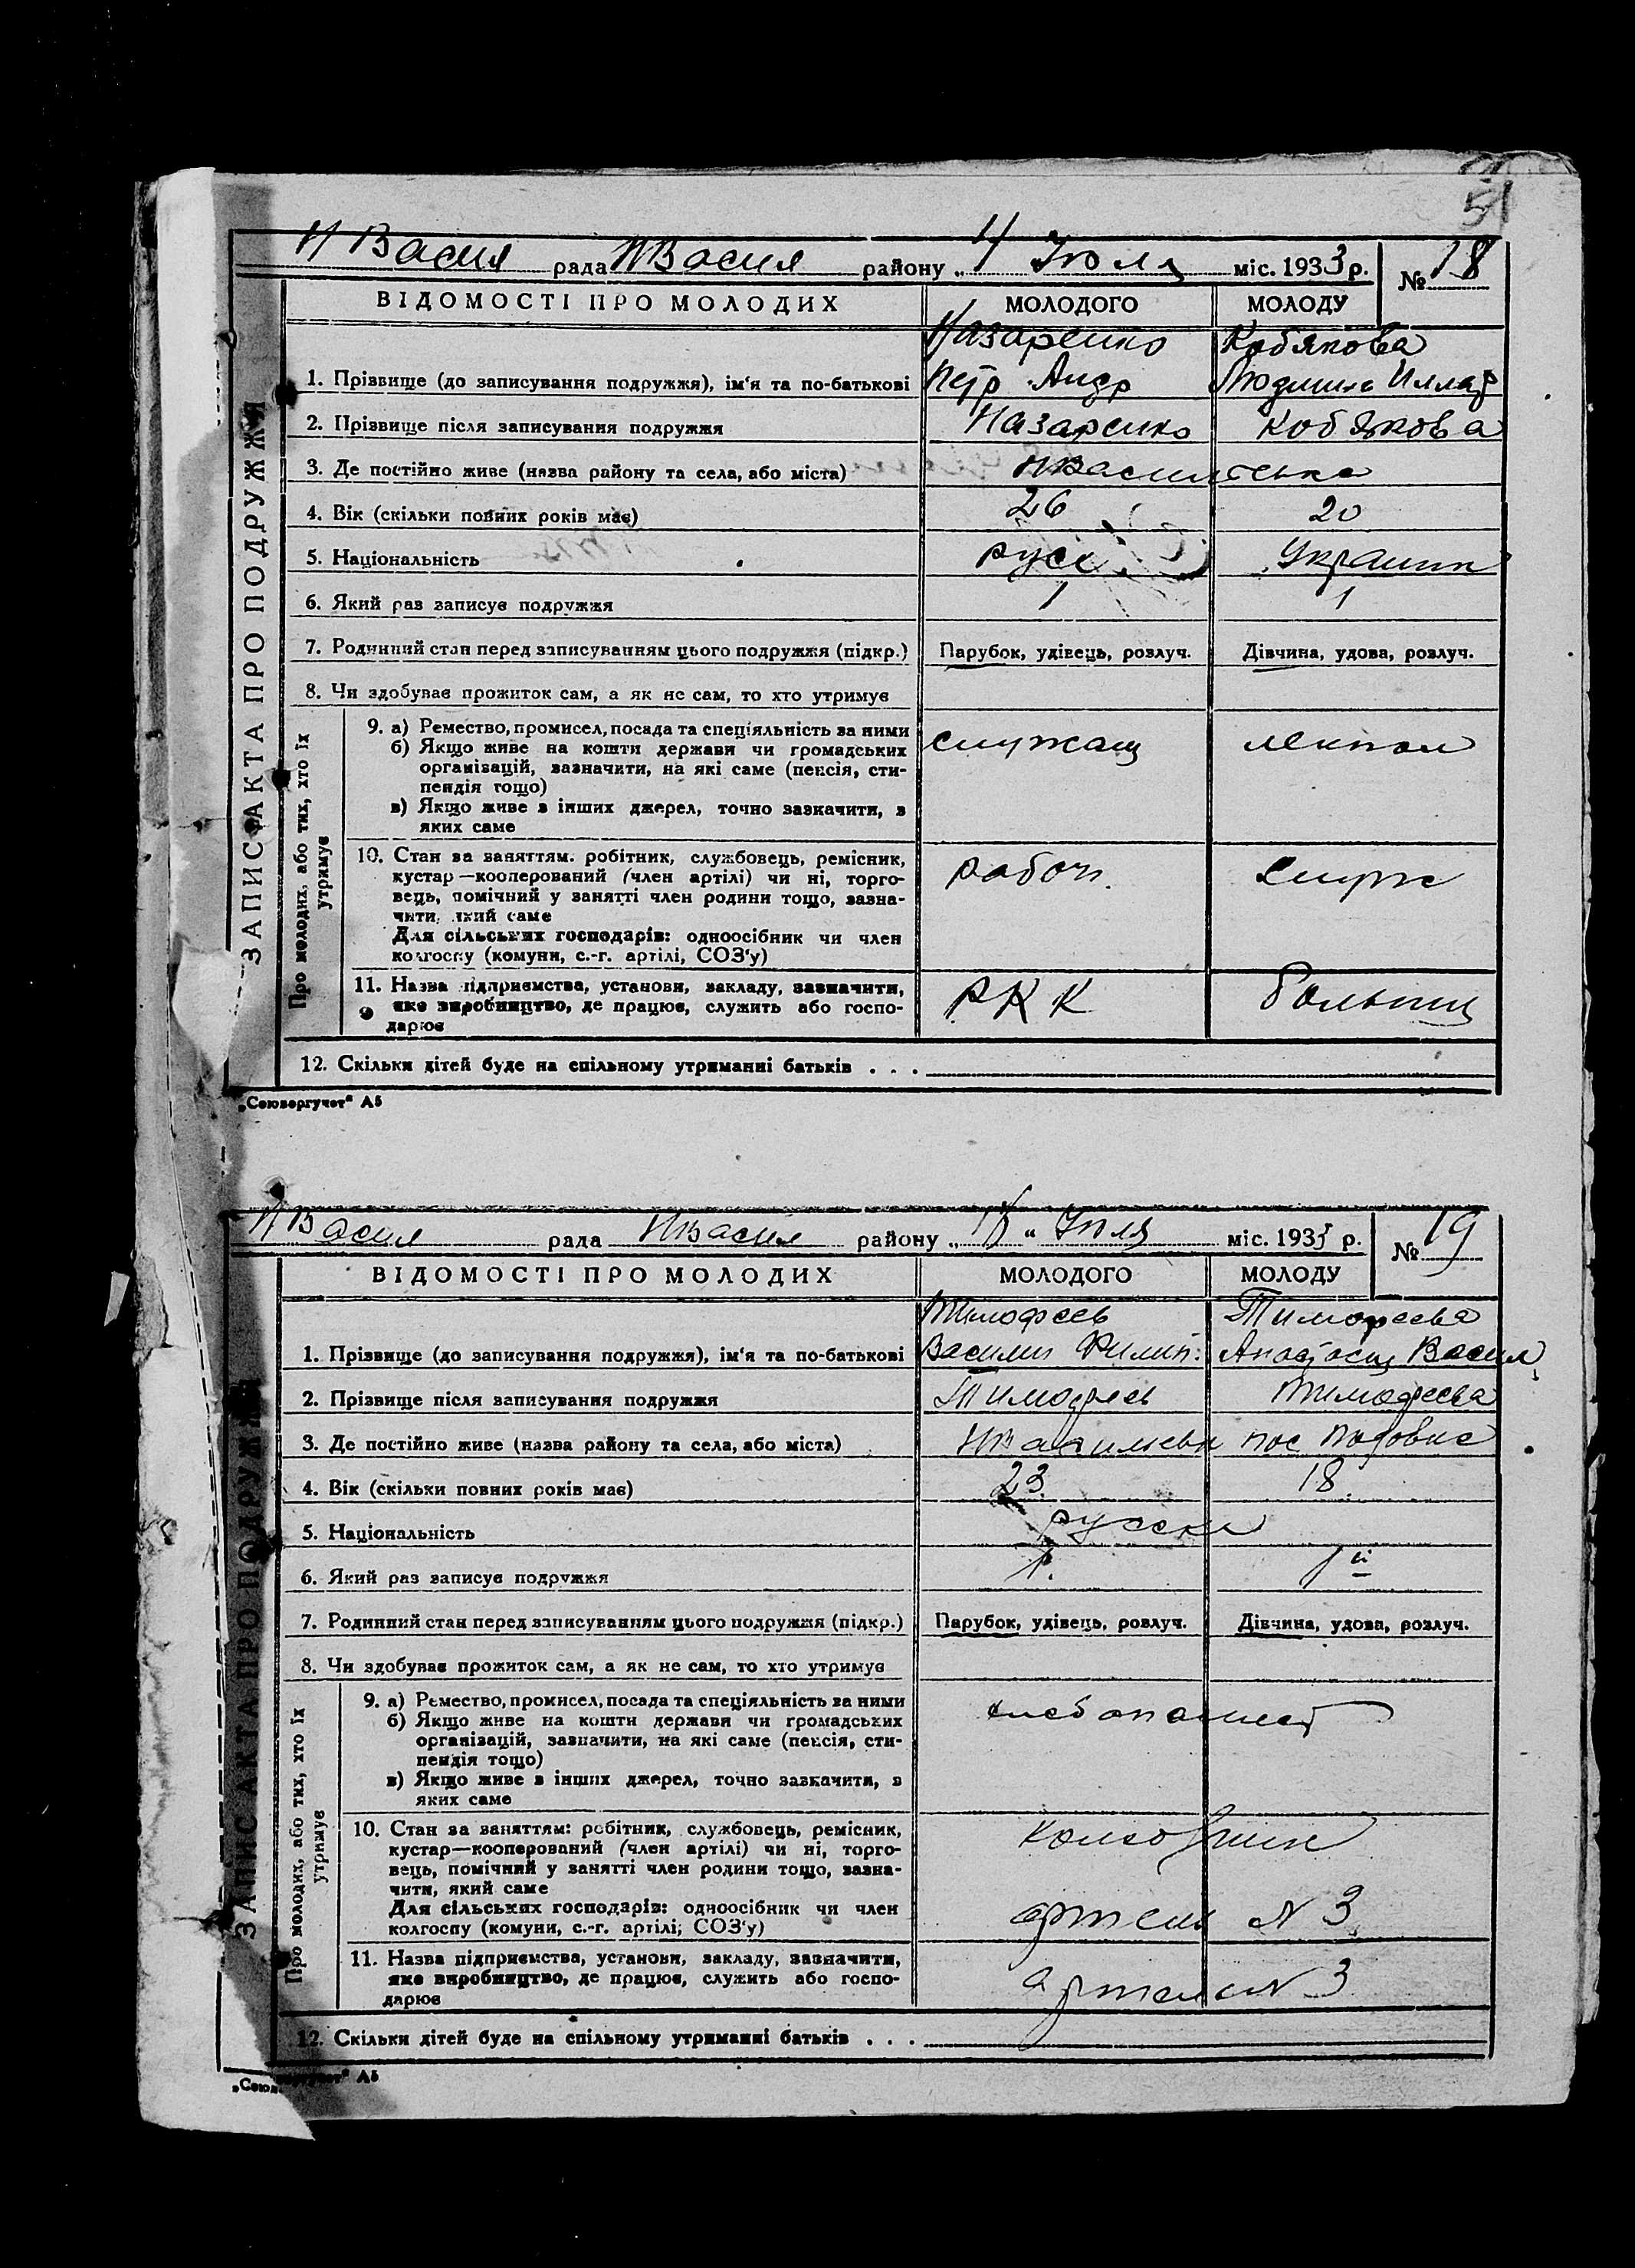 51
Н Васил рада НВасил району „ 4 Июля міс. 1933 р. № 18
ВІДОМОСТІ ПРО МОЛОДИХ МОЛОДОГО МОЛОДУ
Назаренко Кобякова
1. Прізвище (до записування подружжя), ім‘я та по-батькові Петр Андр Людмила Иллар
2. Прізвище після записування подружжя Назаренко Кобякова
3. Де постійно живе (назва району та села, або міста) НВасильевка
4. Вік (скільки повних років має) 26 20
5. Національність русск Украинк
6. Який раз записує подружжя 1 1
7. Родинний стан перед записуванням цього подружжя (підкр.) Парубок, удівець, розлуч. Дівчина, удова, розлуч.
8. Чи здобуває прожиток сам, а як не сам, то хто утримує
9. а) Ремество, промисел, посада та спеціяльність за ними
б) Якщо живе на кошти держави чи громадських служащ лекпом
організацій, зазначити, на які саме (пенсія, сти-
пендія тощо)
в) Якщо живе з інших джерел, точно зазначити, з
яких саме
10. Стан за заняттям. робітник, службовець, ремісник,
кустар—кооперований (член артілі) чи ні, торго- рабоч. служ
вець, помічний у занятті член родини тощо, зазна-
чити, який саме
Для сільських господарів: одноосібник чи член
колгоспу (комуни, с.-г. артілі, СОЗ‘у)
11. Назва підприємства, установи, закладу, зазначити,
яке виробництво, де працює, служить або госпо- РКК больниц
дарює
12. Скільки дітей буде на спільному утриманні батьків . . .
„Союзоргучет“ А5
ЗАПИС АКТА ПРО ПОДРУЖЖЯ
Про молодих, або тих, хто їх
утримує
НВасил рада НВасил району „ “ Июля міс. 1933 р. № 19
ВІДОМОСТІ ПРО МОЛОДИХ МОЛОДОГО МОЛОДУ
Тимофеев Тимофеева
1. Прізвище (до записування подружжя), ім‘я та по-батькові Василий Филип. Анастасия Васил
2. Прізвище після записування подружжя Тимофеев Тимофеева
3. Де постійно живе (назва району та села, або міста) НВасильевк пос
4. Вік (скільки повних років має) 23 18
5. Національність русские
6. Який раз записує подружжя 1. 1й
7. Родинний стан перед записуванням цього подружжя (підкр.) Парубок, удівець, розлуч. Дівчина, удова, розлуч.
8. Чи здобуває прожиток сам, а як не сам, то хто утримує
9. а) Ремество, промисел, посада та спеціяльність за ними хлебопашест
б) Якщо живе на кошти держави чи громадських
організацій, зазначити, на які саме (пенсія, сти-
пендія тощо)
в) Якщо живе з інших джерел, точно зазначити, з
яких саме
10. Стан за заняттям: робітник, службовець, ремісник, колхозник
кустар—кооперований (член артілі) чи ні, торго-
вець, помічний у занятті член родини тощо, зазна-
чити, який саме
Для сільських господарів: одноосібник чи член артель N 3
колгоспу (комуни, с.-г. артілі; СОЗ‘у)
11. Назва підприємства, установи, закладу, зазначити,
яке виробництво, де працює, служить або госпо- артель N 3
дарює
12. Скільки дітей буде на спільному утриманні батьків . . .
„Союзоргучет“ А5
ЗАПИС АКТА ПРО ПОДРУЖЖЯ
Про молодих, або тих, хто їх
утримує